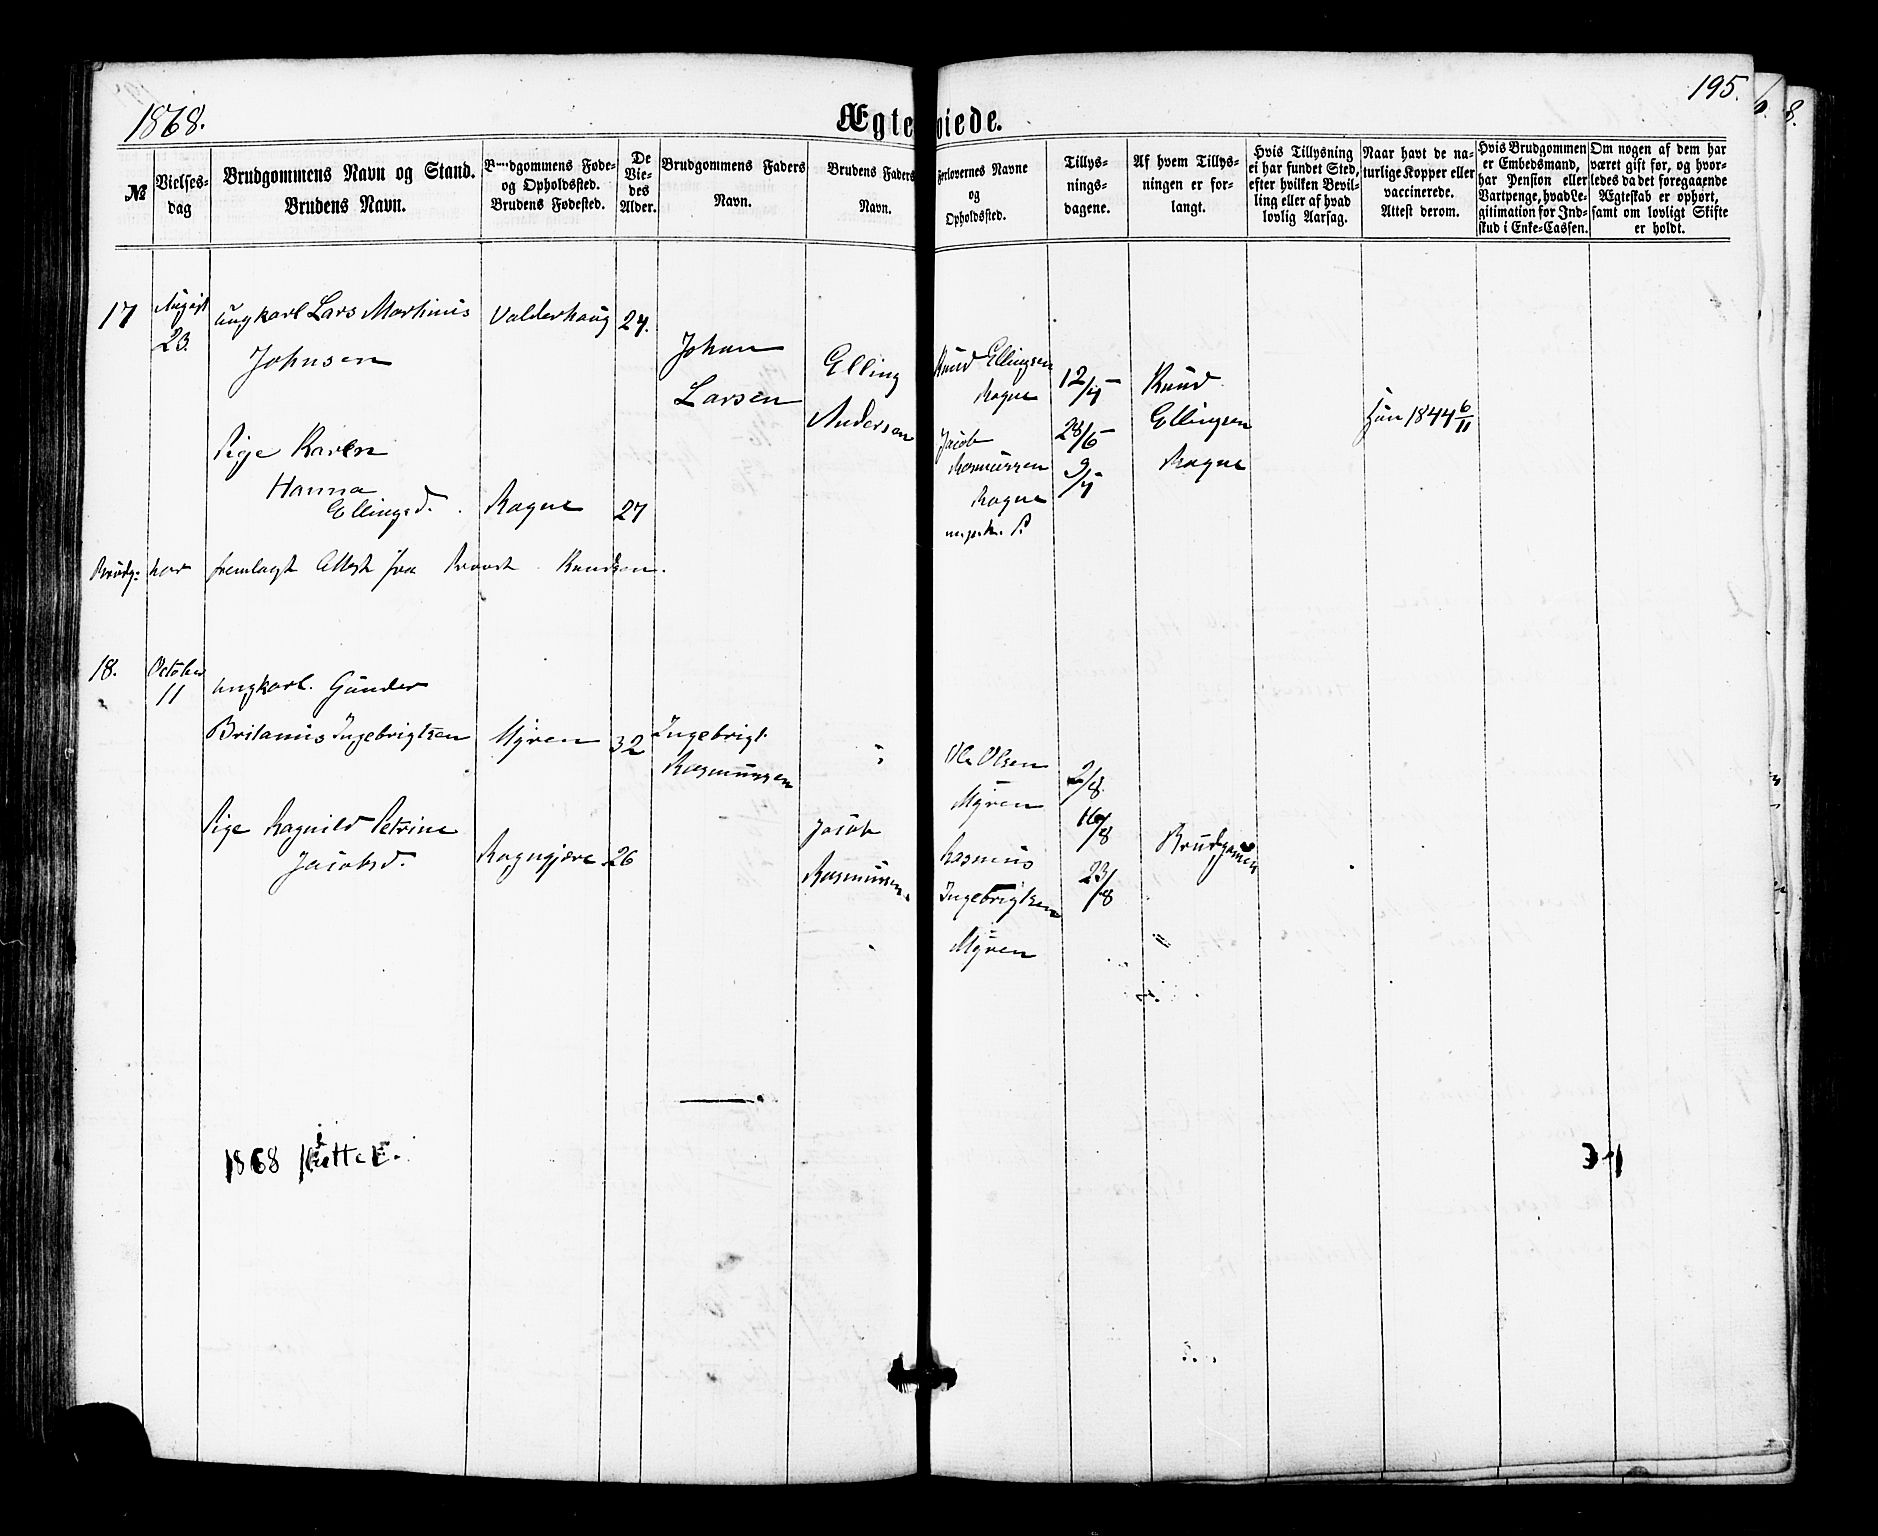 1868.
Ægteviede.
195.
№
Vielses-
dag
Brudgommens Navn og Stand.
Brudens Navn.
Brudgommens Føde-
og Opholdssted.
Brudens Fødested.
De
Vie-
des
Alder.
Brudgommens Faders
Navn.
Brudens Faders
Navn.
Forlovernes Navne
og
Opholdssted.
Tillys-
nings-
dagene.
Af hvem Tillys-
ningen er for-
langt.
Hvis Tillysning
ei har fundet Sted,
efter hvilken Bevil-
ling eller af hvad
lovlig Aarsag.
Naar havt de na-
turlige Kopper eller
vaccinerede.
Attest derom.
Hvis Brudgommen
er Embedsmand,
har Pension eller
Vartpenge, hvad Le-
gitimation for Ind-
skud i Enke-Cassen.
Om nogen af dem har
været gift før, og hvor-
ledes da det foregaaende
Ægteskab er ophørt,
samt om lovligt Skifte
er holdt.
17
August
23.
Ungkarl Lars Martinus
Johnsen
Valderhaug
27.
Johan
Larsen
Elling
Andersen
Pige Karen
Hanna
Ellingsd.
Rogne
27
Knud Ellingsen
Rogne
Jacob
Rasmussen
Rogne
12/7
28/6
9/7
Knud
Ellingsen
Rogne
Hun 1844 6/11
Brudg: har fremlagt Attest fra Provst Knudsen.
18.
October
11
Ungkarl. Gunder
Britanius Ingebrigtsen
Myren
32
Ingebrigt
Rasmussen
Pige Ragnild Petrine
Jacobsd.
Rogngjære
26
Jacob
Rasmussen
Ole Olsen
Myren
Rasmus
Ingebrigtsen
Myren
2/8
16/8
23/8
Brudgommen
1868